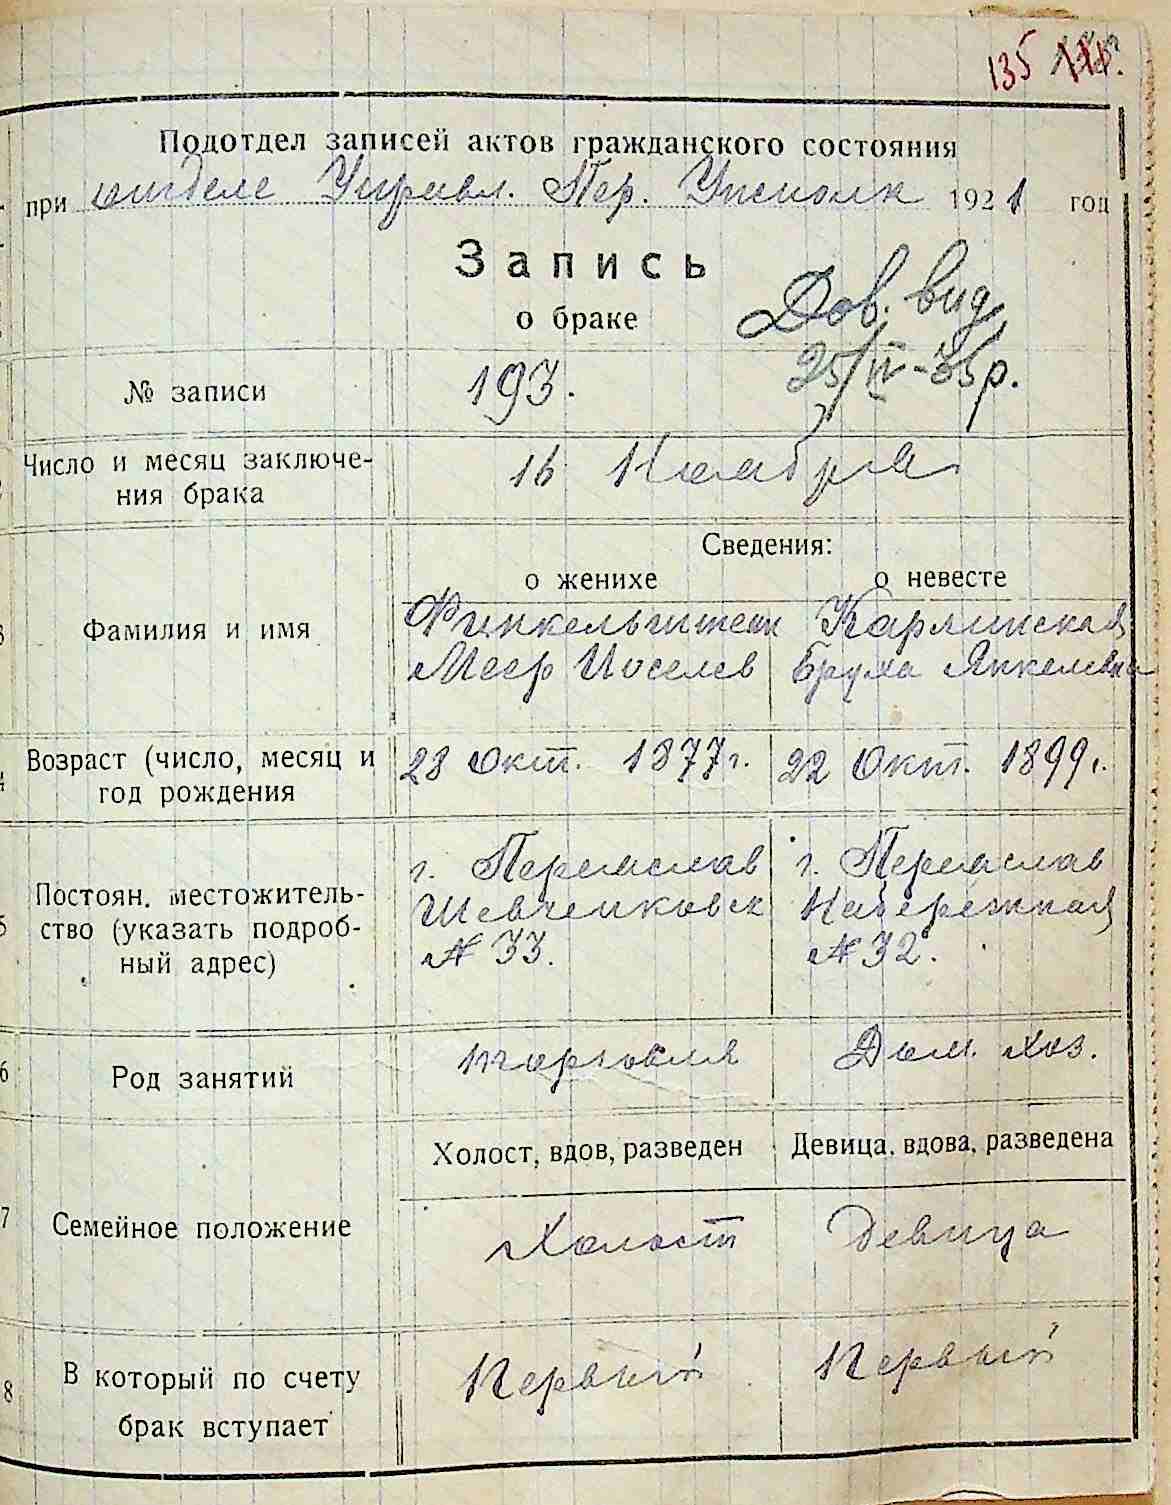 135
Подотдел записей актов гражданского состояния
при отделе Управл. Пер. Уисполк 1921 год
Запись
о браке
Дов. вид.
25/IV-35р.
№ записи 193.
Число и месяц заключе-
ния брака
16 Ноября
Сведения:
о женихе о невесте
3 Фамилия и имя
Финкельштейн Карлинская
Меер Иоселев Бруха Янкелевна
4 Возраст (число, месяц и
год рождения
28 Окт. 1877г. 22 Окт. 1899г.
5 Постоян. местожитель-
ство (указать подроб-
ный адрес)
г. Переяслав г. Переяслав
Шевченковск Набережная
№ 33. № 32.
6 Род занятий торговля Дом. хоз.
Холост, вдов, разведен Девица, вдова, разведена
7 Семейное положение Холост Девица
8 В который по счету
брак вступает
Первый Первый